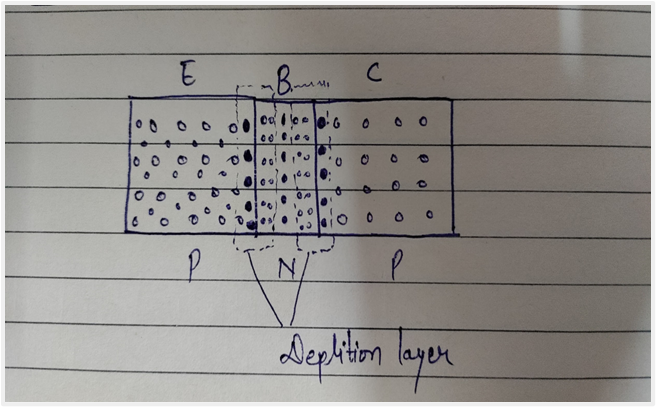 E B C
P N P
Deplition layer